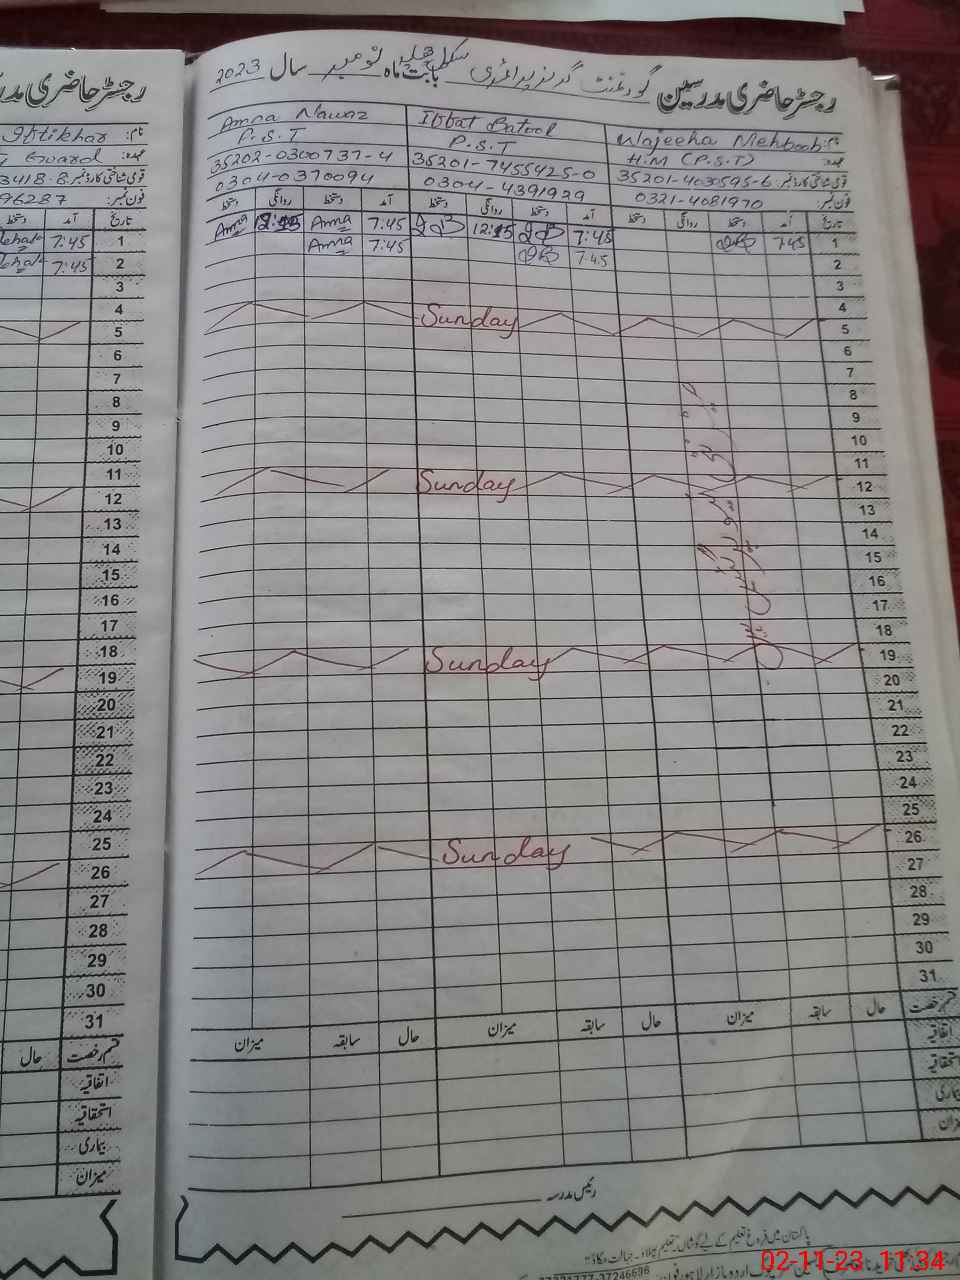 رجسٹر حاضری مدرسین گورنمنٹ گرلز پرائمری سکول بابت ماہ نومبر سال 2023
نام: Wajeeha Mehboob Iffat Batool Amna Nawaz
عہدہ: H.M (P.S.T) P.S.T P.S.T
قومی شناختی کارڈ نمبر: 35201-4030595-6 35201-7455425-0 35202-0300737-4
فون نمبر: 0321-4081970 0304-4391929 0304-0370094
تاریخ آمد دستخط روانگی دستخط آمد دستخط روانگی دستخط آمد دستخط روانگی دستخط
1 7:45 7:45 12:15 7:45 Amna 12:15 Amna
2 7:45 7:45 Amna
3
4
5 Sunday
6
7
8
9
10
11
12 Sunday
13
14
15
16
17
18
19 Sunday
20
21
22
23
24
25
26 Sunday
27
28
29
30
31
قسم رخصت حال سابقہ میزان حال سابقہ میزان حال سابقہ میزان
اتفاقیہ
استحقاقیہ
بیماری
میزان
رئیس مدرسہ
پاکستان میں فروغ تعلیم کے لیے کوشاں۔ تعلیم پھیلاؤ۔ جہالت مکاؤ
37246696
رجسٹر حاضری مدر
نام: Iftikhar
عہدہ: Guard
قومی شناختی کارڈ نمبر: 3418-8
فون نمبر: 96287
تاریخ آمد دستخط
1 7:45
2 7:45
3
4
5
6
7
8
9
10
11
12
13
14
15
16
17
18
19
20
21
22
23
24
25
26
27
28
29
30
31
قسم رخصت حال
اتفاقیہ
استحقاقیہ
بیماری
میزان
02-11-23 11:34